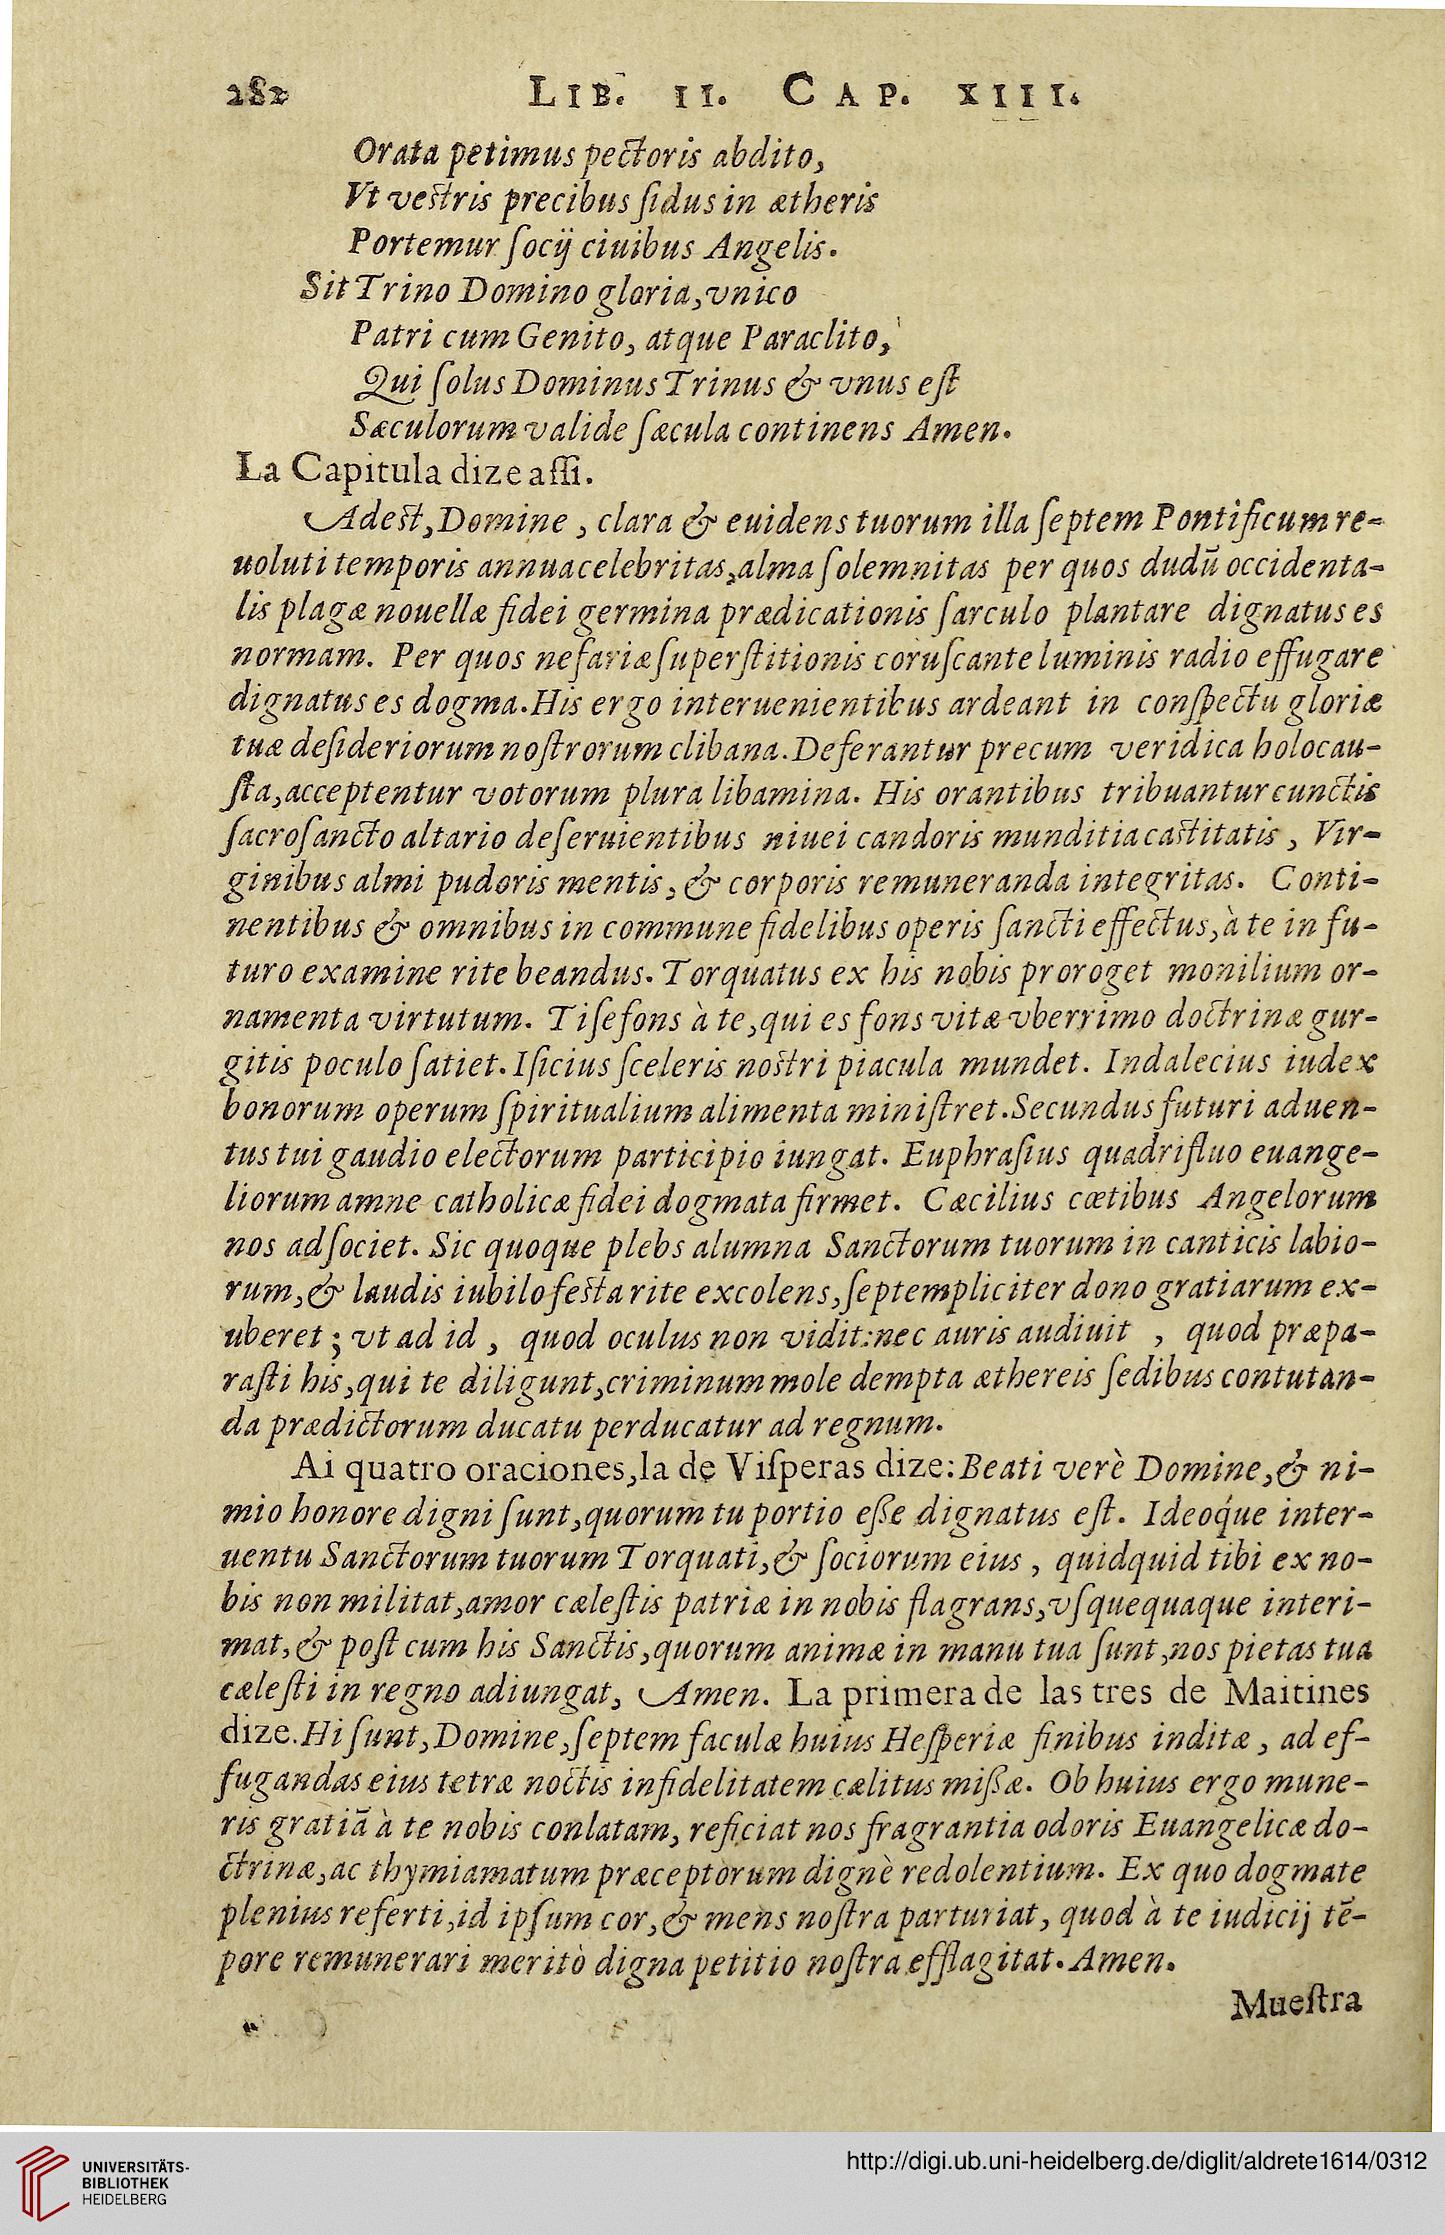 282 LIB. II. CAP. XIII.
Orata petimus pectoris abdito,
Vt vestris precibus ſidus in ætheris
Portemur ſocij ciuibus Angelis.
Sit Trino Domino gloria, vnico
Patri cum Genito, atque Paraclito,
Qui ſolus Dominus Trinus & vnus eſt
Sæculorum valide ſæcula continens Amen.
La Capitula dize aſſi.
Adest, Domine, clara & euidens tuorum illa ſeptem Pontificum re-
uoluti temporis annua celebritas, alma ſolemnitas per quos dudū occidenta-
lis plagæ nouellæ fidei germina prædicationis ſarculo plantare dignatus es
normam. Per quos nefariæ ſuperſtitionis coruſcante luminis radio effugare
dignatus es dogma. His ergo interuenientibus ardeant in conſpectu gloriæ
tuæ deſideriorum noſtrorum clibana. Deferantur precum veridica holocau-
ſta, acceptentur votorum plura libamina. His orantibus tribuantur cunctis
ſacroſancto altario deſeruientibus niuei candoris munditia castitatis, Vir-
ginibus almi pudoris mentis, & corporis remuneranda integritas. Conti-
nentibus & omnibus in commune fidelibus operis ſancti effectus, à te in fu-
turo examine rite beandus. Torquatus ex his nobis proroget monilium or-
namenta virtutum. Tiſefons à te, qui es fons vitæ vberrimo doctrinæ gur-
gitis poculo ſatiet. Iſicius ſceleris nostri piacula mundet. Indalecius iudex
bonorum operum ſpiritualium alimenta miniſtret. Secundus futuri aduen-
tus tui gaudio electorum participio iungat. Euphraſius quadrifluo euange-
liorum amne catholicæ fidei dogmata firmet. Cæcilius cœtibus Angelorum
nos adſociet. Sic quoque plebs alumna Sanctorum tuorum in canticis labio-
rum, & laudis iubilo festa rite excolens, ſeptempliciter dono gratiarum ex-
uberet; vt ad id, quod oculus non vidit: nec auris audiuit, quod præpa-
raſti his, qui te diligunt, criminum mole dempta æthereis ſedibus contutan-
da prædictorum ducatu perducatur ad regnum.
Ai quatro oraciones, la de Viſperas dize: Beati verè Domine, & ni-
mio honore digni ſunt, quorum tu portio eſſe dignatus eſt. Ideoq́ue inter-
uentu Sanctorum tuorum Torquati, & ſociorum eius, quidquid tibi ex no-
bis non militat, amor cæleſtis patriæ in nobis flagrans, vſquequaque interi-
mat, & poſt cum his Sanctis, quorum animæ in manu tua ſunt, nos pietas tua
cæleſti in regno adiungat, Amen. La primera de las tres de Maitines
dize. Hi ſunt, Domine, ſeptem faculæ huius Heſperiæ finibus inditæ, ad ef-
fugandas eius tetræ noctis infidelitatem cælitus miſſæ. Ob huius ergo mune-
ris gratiā à te nobis conlatam, reficiat nos fragrantia odoris Euangelicæ do-
ctrinæ, ac thymiamatum præceptorum dignè redolentium. Ex quo dogmate
plenius referti, id ipſum cor, & mens noſtra parturiat, quod à te iudicij tē-
pore remunerari meritò digna petitio noſtra efflagitat. Amen.
Mueſtra
UNIVERSITÄTS-
BIBLIOTHEK
HEIDELBERG
http://digi.ub.uni-heidelberg.de/diglit/aldrete1614/0312